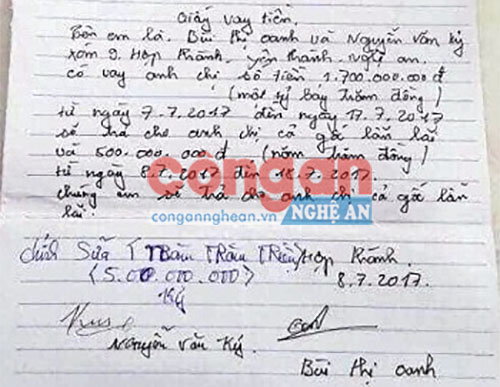 Giấy vay tiền.
Bên em là. Bùi Thị Oanh và Nguyễn Văn Ký
xóm 9. Hợp Thành, Yên Thành Nghệ An.
có vay anh chị số tiền 1.700.000.000 đ
(một tỷ bảy trăm đồng)
từ ngày 7.7.2017 đến ngày 17.7.2017
sẽ trả cho anh chị cả gốc lẫn lãi
và 500.000.000 đ (năm trăm đồng)
từ ngày 8.7.2017 đến 18.7.2017.
chúng em sẽ trả cho anh chị cả gốc lẫn
lãi.
công an
congannghean.vn NGHỆ AN
Sửa Hợp Thành.
(5.00.000.000) 8.7.2017.
Ký
Nguyễn Văn Ký.
Bùi Thị Oanh